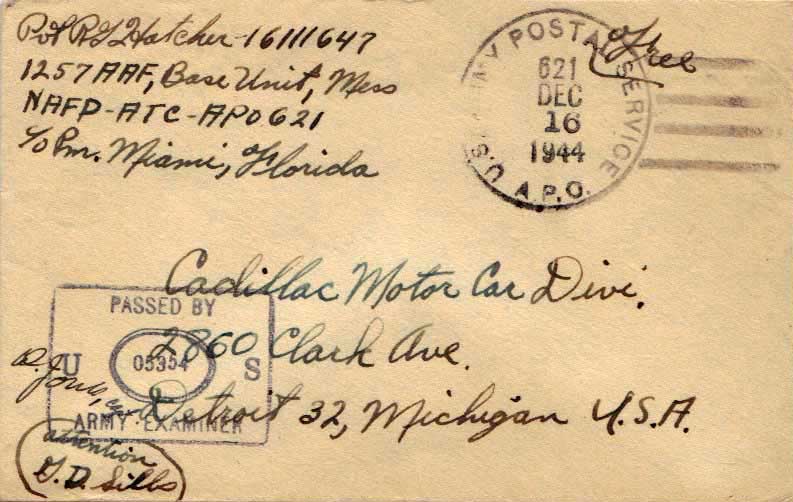 Pvt R G Hatcher-16111647
1257 AAF, Base Unit, Mess
NAFD-ATC-APO 621
c/o Pm. Miami, Florida
Free
U.S. ARMY POSTAL SERVICE
A.P.O.
621
DEC
16
1944
Cadillac Motor Car Divi.
2860 Clark Ave.
Detroit 32, Michigan U.S.A.
PASSED BY
U 05354 S
ARMY EXAMINER
attention
G. D. Sills